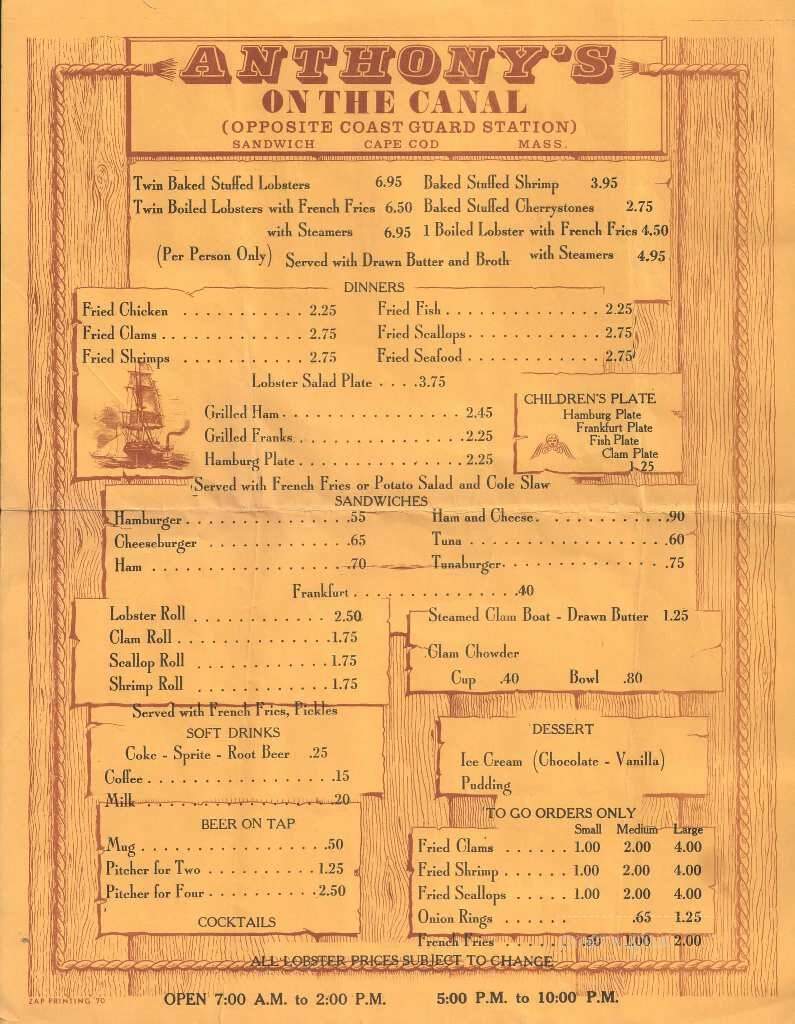 ANTHONY'S
ON THE CANAL
(OPPOSITE COAST GUARD STATION)
SANDWICH CAPE COD MASS.
Twin Baked Stuffed Lobsters 6.95 Baked Stuffed Shrimp 3.95
Twin Boiled Lobsters with French Fries 6.50 Baked Stuffed Cherrystones 2.75
with Steamers 6.95 1 Boiled Lobster with French Fries 4.50
(Per Person Only) Served with Drawn Butter and Broth with Steamers 4.95
DINNERS
Fried Chicken . . . . . . . . . . . . 2.25 Fried Fish . . . . . . . . . . . . . 2.25
Fried Clams . . . . . . . . . . . . 2.75 Fried Scallops . . . . . . . . . . . 2.75
Fried Shrimps . . . . . . . . . . . 2.75 Fried Seafood . . . . . . . . . . . 2.75
Lobster Salad Plate . . . . 3.75
Grilled Ham . . . . . . . . . . . . . . . 2.45
Grilled Franks . . . . . . . . . . . . . . 2.25
Hamburg Plate . . . . . . . . . . . . . . 2.25
CHILDREN'S PLATE
Hamburg Plate
Frankfurt Plate
Fish Plate
Clam Plate
1.25
Served with French Fries or Potato Salad and Cole Slaw
SANDWICHES
Hamburger . . . . . . . . . . . . . .55 Ham and Cheese . . . . . . . . . . . .90
Cheeseburger . . . . . . . . . . . . .65 Tuna . . . . . . . . . . . . . . . . .60
Ham . . . . . . . . . . . . . . . . .70 Tunaburger . . . . . . . . . . . . . .75
Frankfurt . . . . . . . . . . . . . .40
Lobster Roll . . . . . . . . . . . 2.50
Clam Roll . . . . . . . . . . . . . 1.75
Scallop Roll . . . . . . . . . . . 1.75
Shrimp Roll . . . . . . . . . . . 1.75
Served with French Fries, Pickles
Steamed Clam Boat - Drawn Butter 1.25
Clam Chowder
Cup .40 Bowl .80
SOFT DRINKS
Coke - Sprite - Root Beer .25
Coffee . . . . . . . . . . . . . . . . .15
Milk . . . . . . . . . . . . . . . . .20
DESSERT
Ice Cream (Chocolate - Vanilla)
Pudding
BEER ON TAP
Mug . . . . . . . . . . . . . . . . .50
Pitcher for Two . . . . . . . . . . 1.25
Pitcher for Four . . . . . . . . . . 2.50
COCKTAILS
TO GO ORDERS ONLY
Small Medium Large
Fried Clams . . . . . . 1.00 2.00 4.00
Fried Shrimp . . . . . . 1.00 2.00 4.00
Fried Scallops . . . . . 1.00 2.00 4.00
Onion Rings . . . . . . .65 1.25
French Fries . . . . . . .50 1.00 2.00
ALL LOBSTER PRICES SUBJECT TO CHANGE
ZAP PRINTING '70
OPEN 7:00 A.M. to 2:00 P.M. 5:00 P.M. to 10:00 P.M.